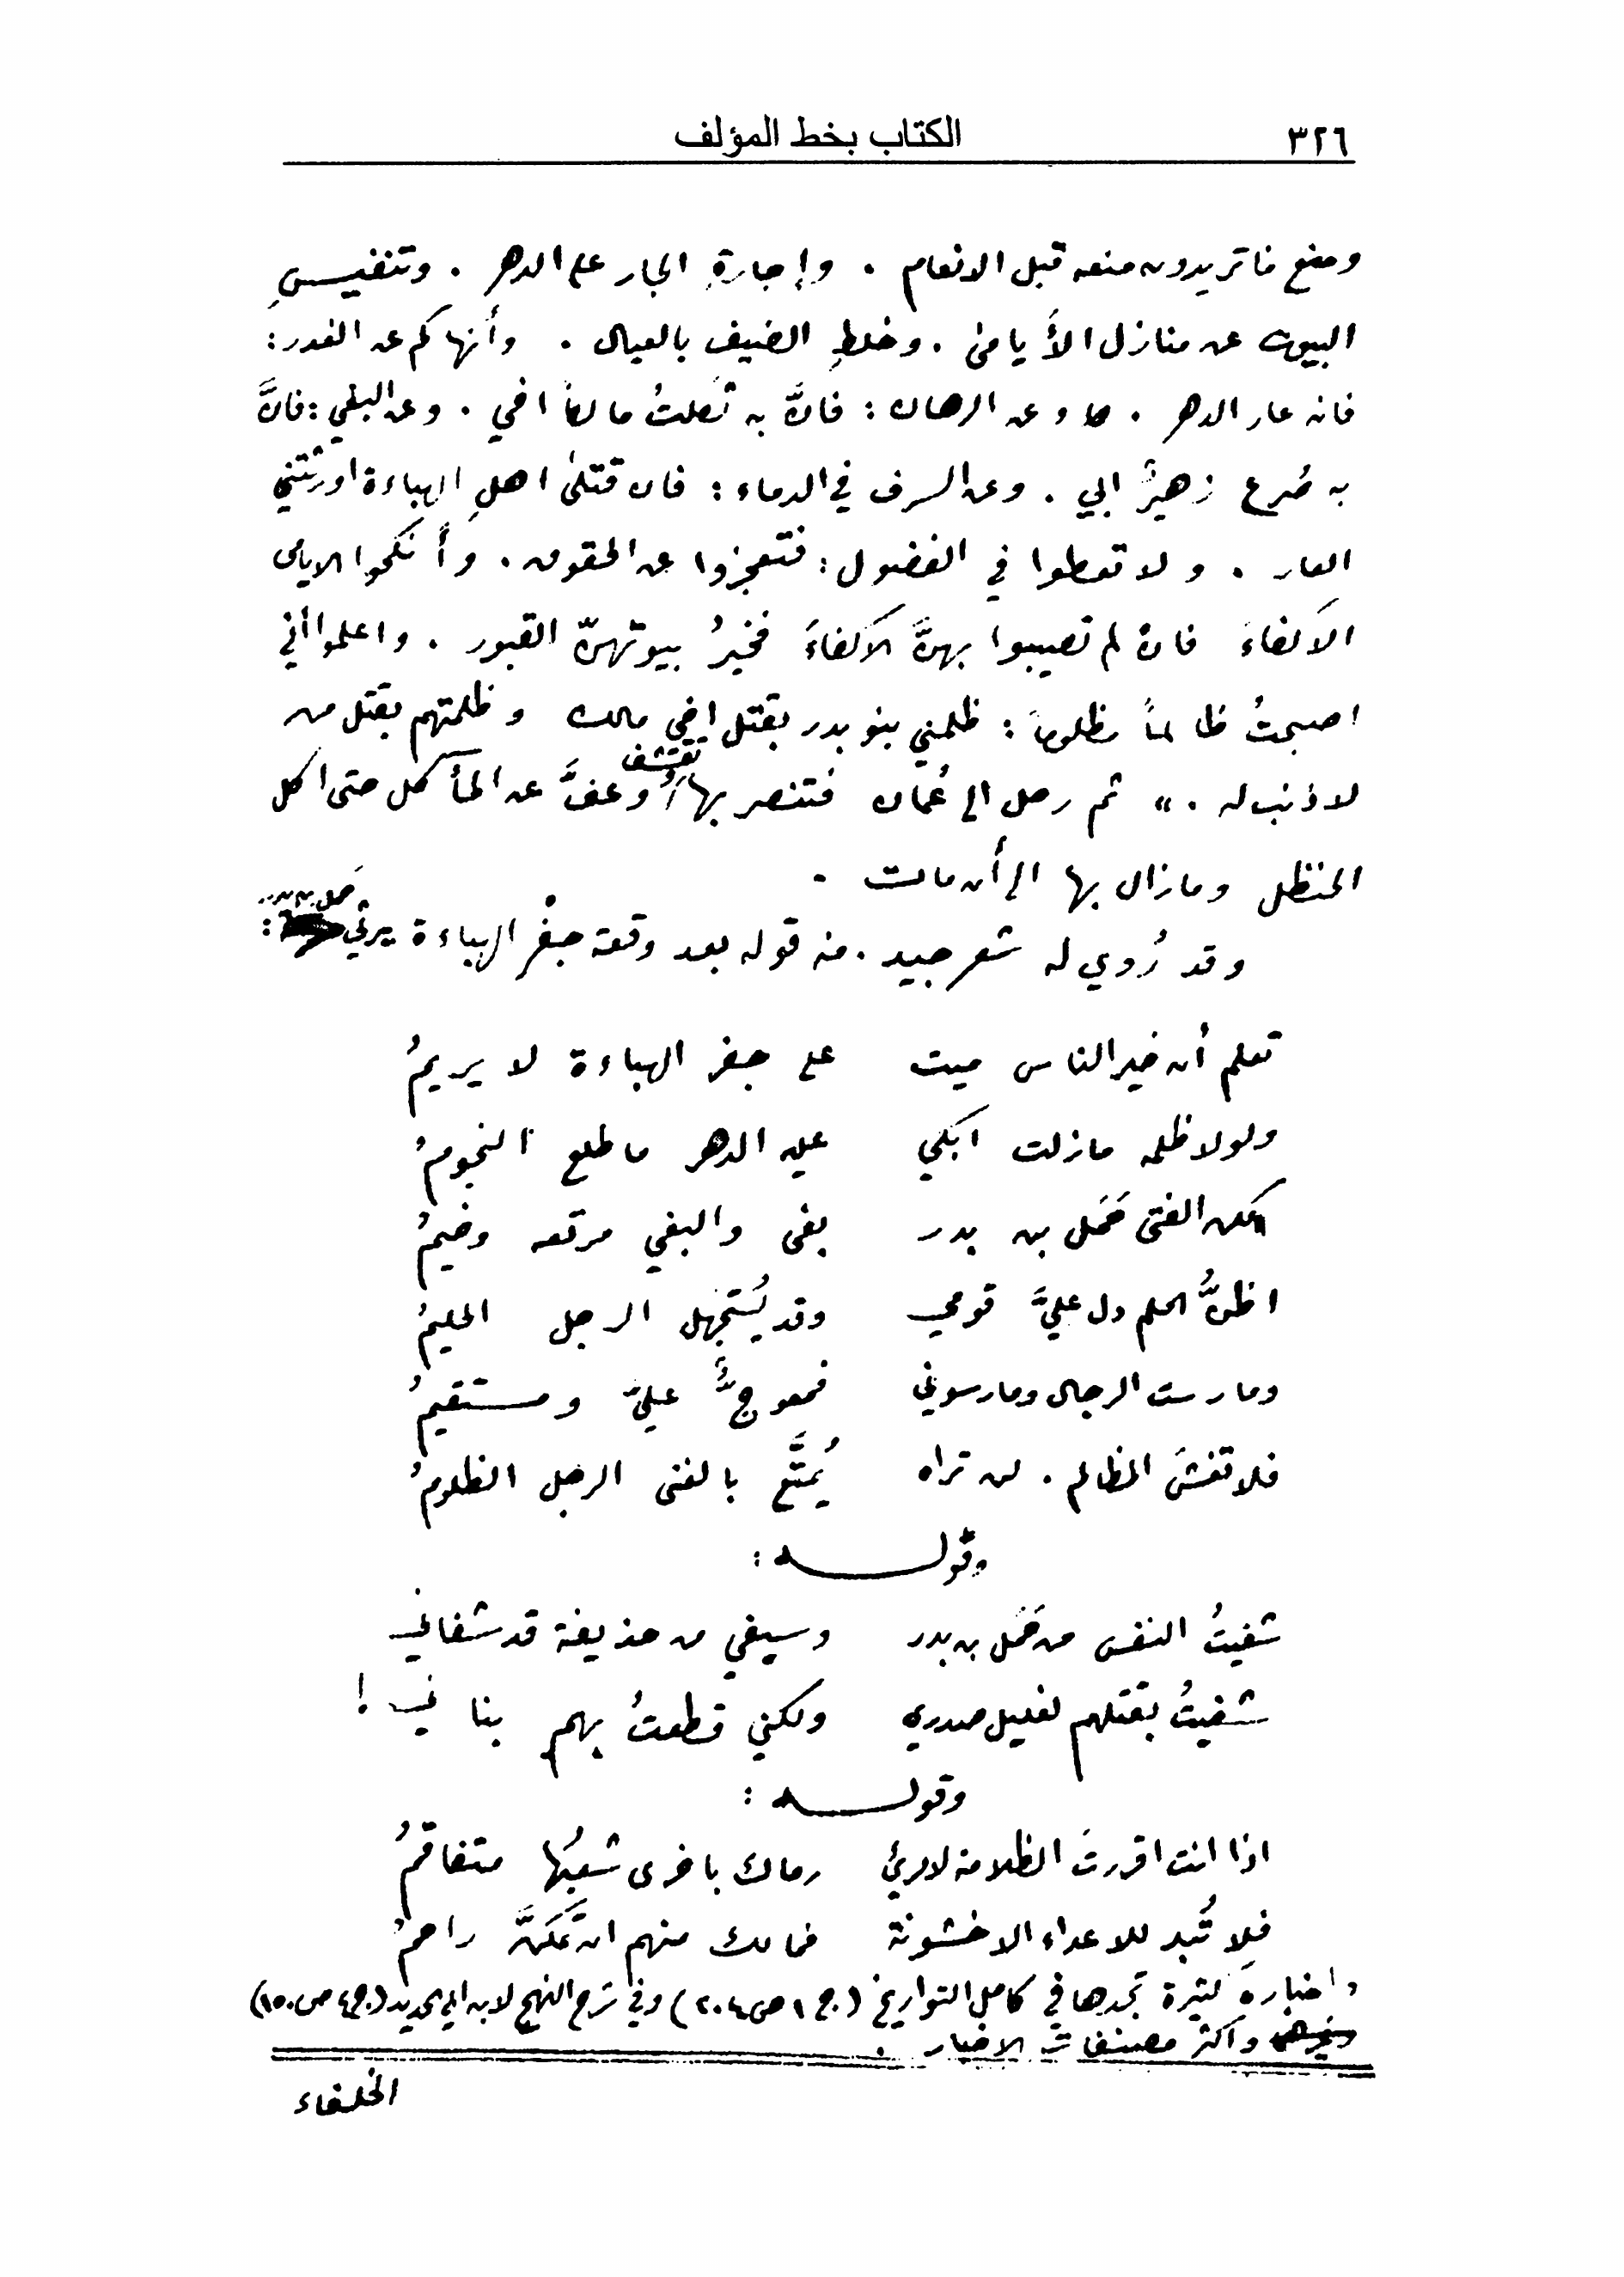 ٣٢٦ الكتاب بخط المؤلف
ومنع ما تريدون منعه قبل الانعام . وإجارةِ الجار على الدهر . وتنفيسِ
البيوت عن منازل الأيامى . وخلطِ الضيف بالعيال . وأنهاكم عن الغدر :
فانه عار الدهر . وعن الرهان : فانَّ به ثكلتُ مالكا اخي . وعن البغي : فانَّ
به صُرع زهيرٌ ابي . وعن السرف في الدماء : فان قتلى اهلِ الهباءة اورثتني
العار . ولا تعطوا في الفضول : فتعجزوا عن الحقوق . وأنكحوا الايامى
الاكفاءَ فان لم تصيبوا بهنَّ الاكفاءَ فخيرُ بيوتهنّ القبور . واعلموا أني
اصبحتُ ظالماً مظلوماً : ظلمني بنو بدر بقتل اخي مالك وظلمتهم بقتل من
لا ذنب له . » ثم رحل الى عُمان فتنصر بها وتقشف وعفَّ عن المأكل حتى اكل
الحنظل وما زال بها الى أن مات .
وقد رُوي له شعر جيد . منه قوله بعد وقعة جفْر الهباءة يرثي حَمَل بن بدر :
تعلم أن خير الناس ميت على جفر الهباءة لا يريمُ
ولولا ظلمه مازلت ابكي عليه الدهر ما طلع النجومُ
ولكن الفتى حَمَل بن بدر بغى والبغي مرتعه وخيمُ
اظنُّ الحلم دل عليَّ قومي وقد يُستجهل الرجل الحليمُ
ومارست الرجال ومارسوني فمعوجٌّ عليَّ ومستقيمُ
فلا تغشَ المظالم . لن تراه يُمتَّع بالغنى الرجل الظلومُ
وقوله :
شفيتُ النفس من حَمَل بن بدر وسيفي من حذيفة قد شفاني
شفيتُ بقتلهم لغليل صدري ولكني قطعتُ بهم بناني !
وقوله :
اذا انت اقررتَ الظلامة لامرئ رماك باخرى شعبُها متفاقمُ
فلا تُبد للاعداء الا خشونة فما لك منهم ان تَمَكَّنَّ راحمُ
واخباره كثيرة تجدها في كامل التواريخ ( ج ١ ص ٢٠٤ ) وفي شرح النهج لابن ابي الحديد ( ج ٤ ص ١٥٠ )
واكثر مصنفات الاخبار .
الخلفاء